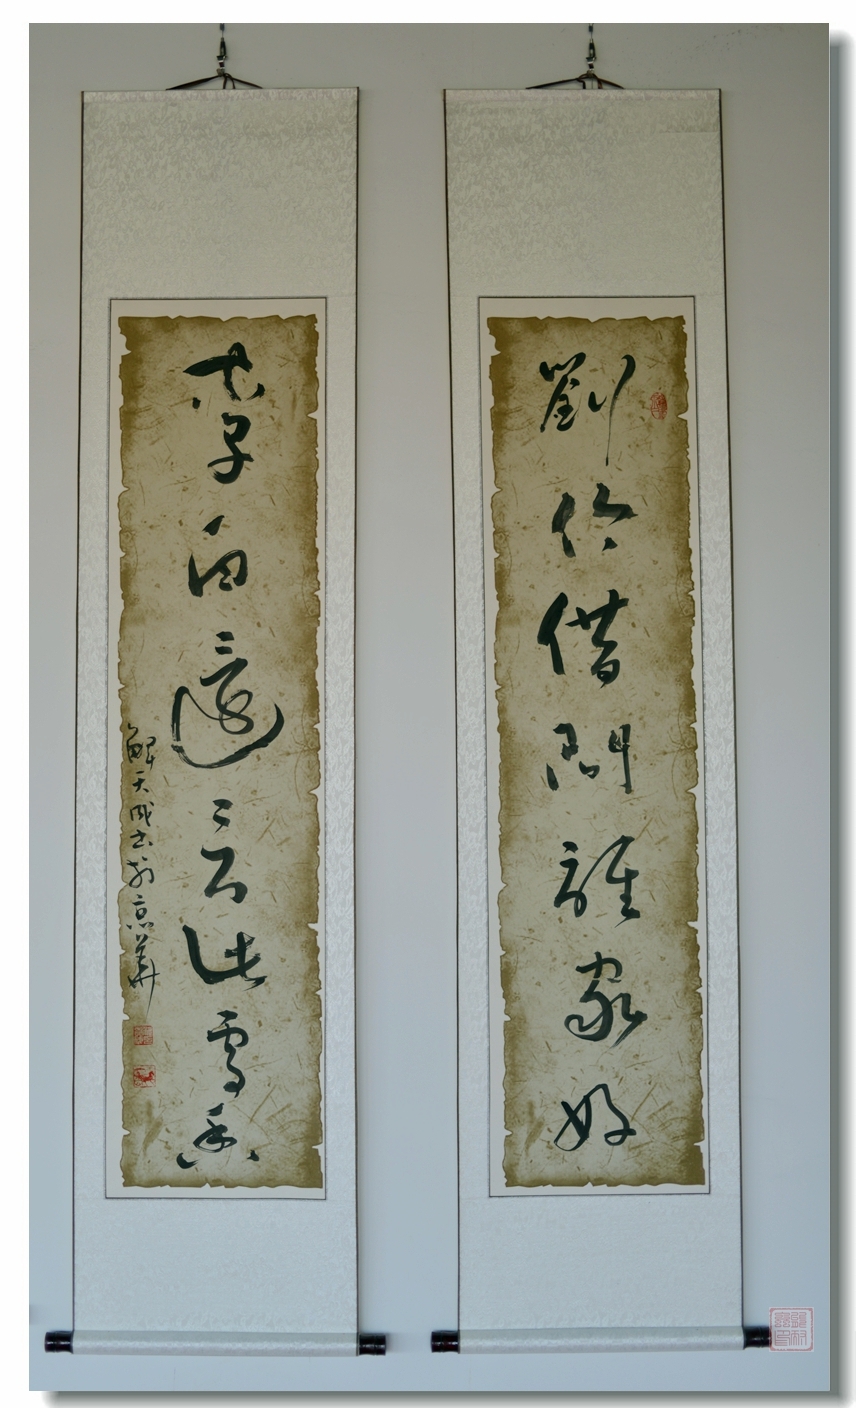 劉伶借問誰家好
李白還言此處香
解天成書於京華